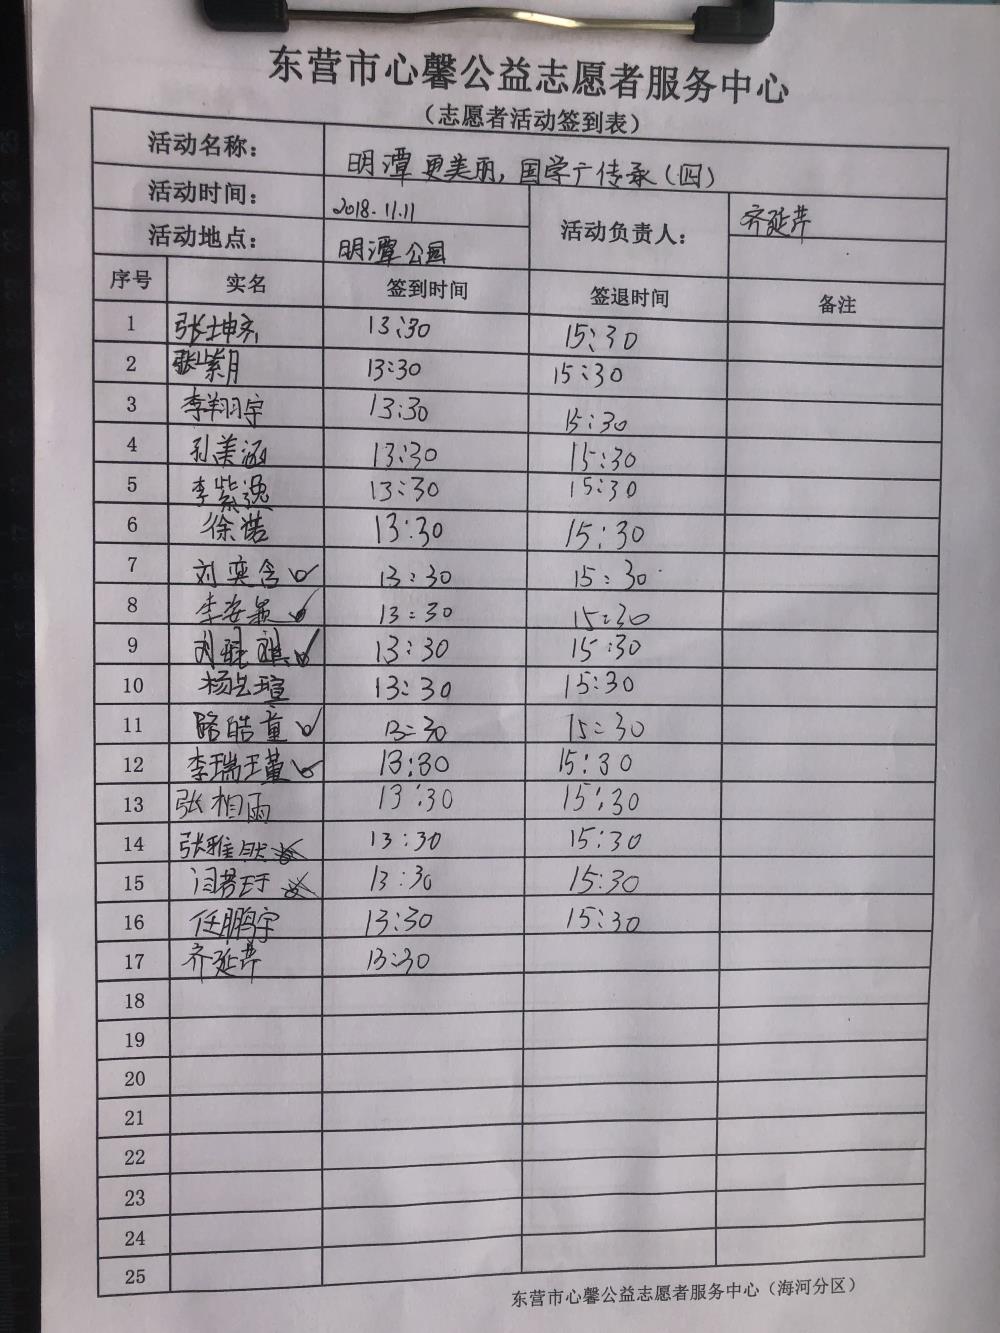 东营市心馨公益志愿者服务中心
（志愿者活动签到表）
活动名称： 明潭更美丽，国学广传承（四）
活动时间： 2018.11.11 活动负责人： 齐延芹
活动地点： 明潭公园
序号 实名 签到时间 签退时间 备注
1 张坤 13:30 15:30
2 张紫月 13:30 15:30
3 李翔宇 13:30 15:30
4 孙美涵 13:30 15:30
5 李紫逸 13:30 15:30
6 徐诺 13:30 15:30
7 刘奕含 13:30 15:30
8 李安颖 13:30 15:30
9 刘 祺 13:30 15:30
10 杨 瑄 13:30 15:30
11 路皓童 13:30 15:30
12 李瑞瑾 13:30 15:30
13 张相雨 13:30 15:30
14 张雅 13:30 15:30
15 闫若玗 13:30 15:30
16 任鹏宇 13:30 15:30
17 齐延芹 13:30
18
19
20
21
22
23
24
25
东营市心馨公益志愿者服务中心（海河分区）